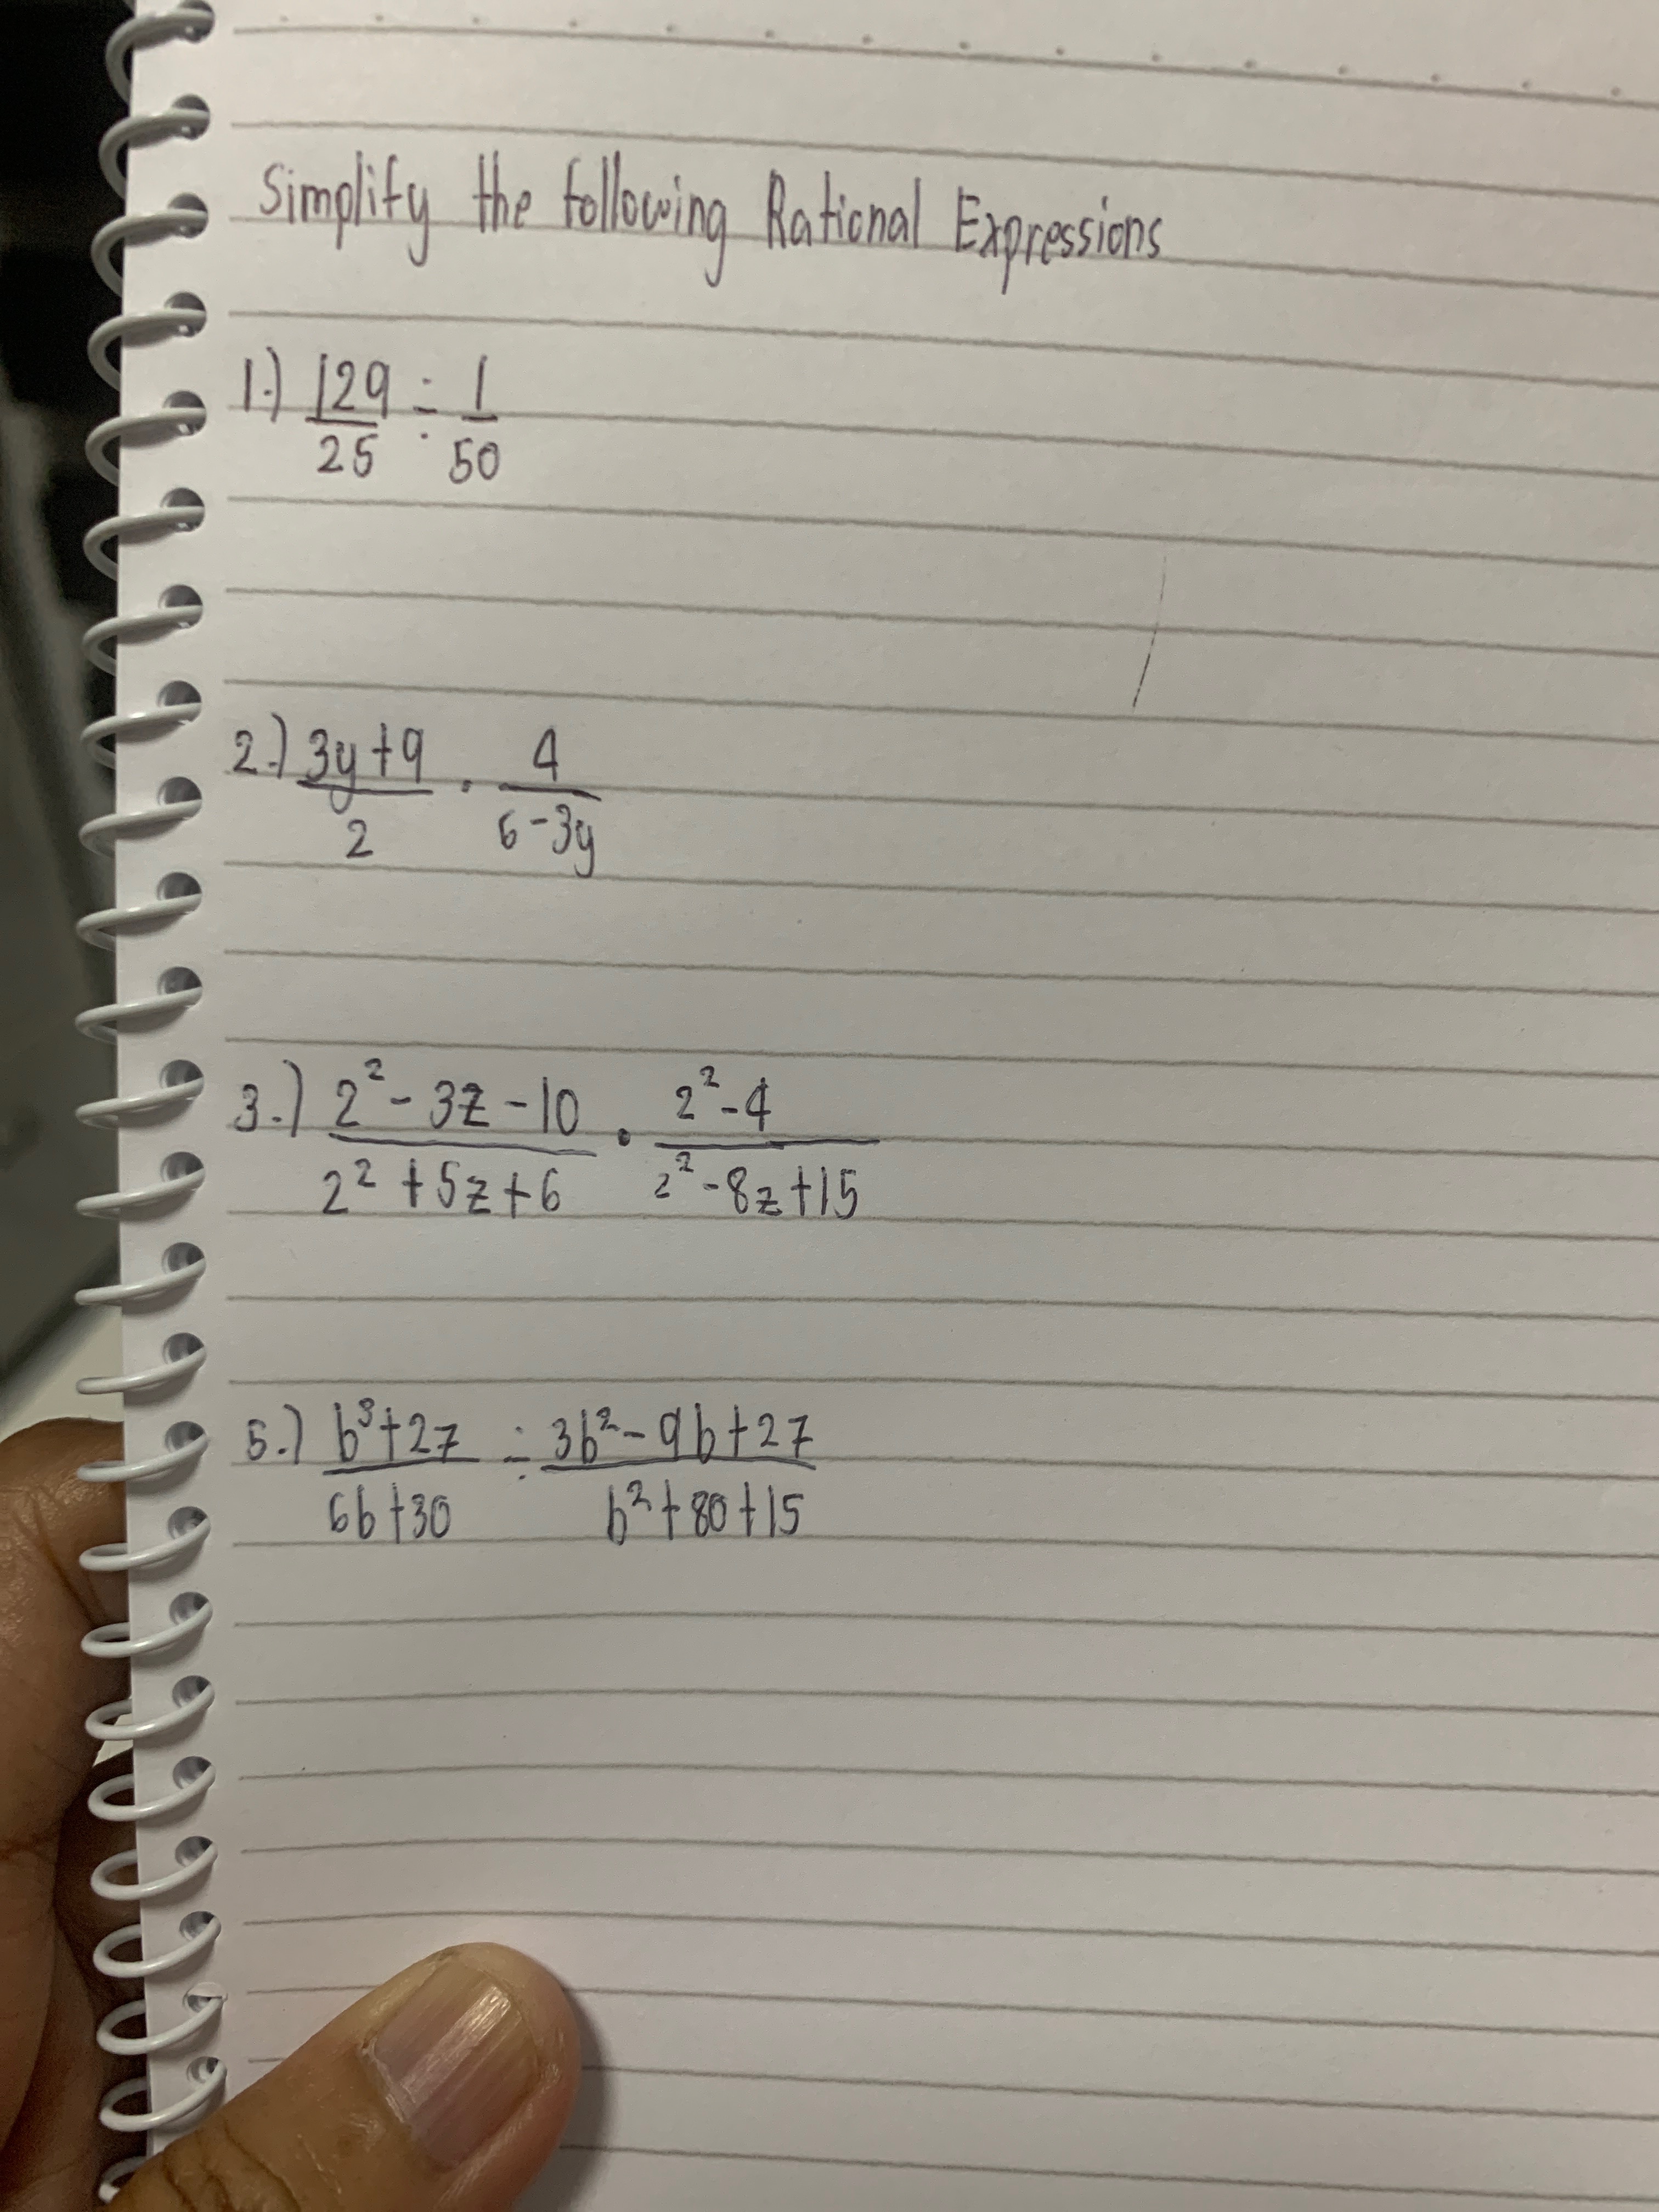 Simplify the following Rational Expressions
1.) 129/25 ÷ 1/50
2.) 3y+9/2 · 4/6-3y
3.) 2²-3z-10/2²+5z+6 · 2²-4/2²-8z+15
5.) b³+27/6b+30 ÷ 3b²-9b+27/b²+80+15